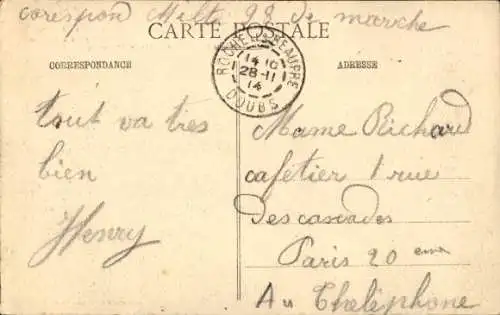 corespond Milte 98 de marche
CARTE POSTALE
CORRESPONDANCE
ADRESSE
ROCHE LES BEAUPRE
14 10
28-11
14
DOUBS
tout va tres
bien
Henry
Mame Richard
cafetier 1 rue
des cascades
Paris 20 eme
Au Theléphone